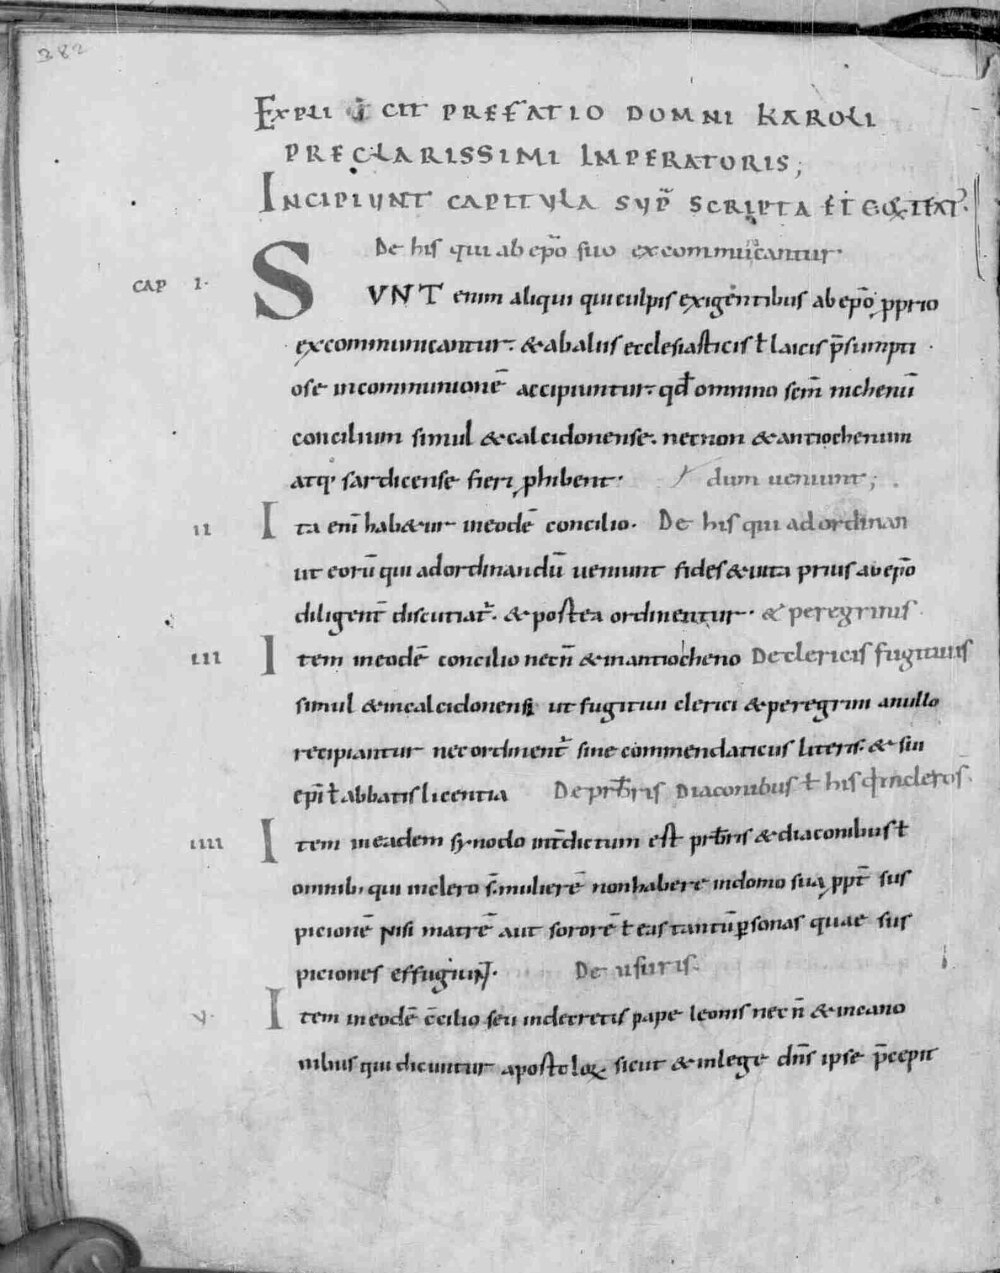 382
EXPLICIT PREFATIO DOMNI KAROLI
PRECLARISSIMI IMPERATORIS;
INCIPIUNT CAPITULA SUP̄ SCRIPTA
De his qui ab ep̄o suo excommunicantur·
CAP I· SUNT enim aliqui qui culpis exigentibus ab ep̄o ꝓprio
excommunicantur· & ab aliis ecclesiasticis ł laicis p̄sumpti
ose in communionē accipiuntur· qđ omnino sc̄m nichenū
concilium simul & calcidonense· necnon & antiochenum
atq· sardicense fieri ꝓhibent· dum ueniunt;
II Ita eni̅ hab&ur in eodē concilio· De his qui ad ordinan
ut eorū qui ad ordinandū ueniunt fides & uita prius ab ep̄o
diligent̄ discutiat᷑· & postea ordinentur· & peregrinis·
III Item in eodē concilio necn̄ & in antiocheno De clericis fugitiuis
simul & in calcidonensi ut fugitiui clerici & peregrini a nullo
recipiantur nec ordinent᷑ sine commendaticiis literis· & sui
ep̄i ł abbatis licentia De prb̄ris Diaconibus ł his
IIII Item in eadem synodo int̄dictum est prb̄ris & diaconibus ł
omnib; qui in clero s̄· mulierē non habere in domo sua ꝓpt̄ sus
picionē nisi matrē aut sororē ł eas tantū ꝑsonas quae sus
piciones effugiunt· De usuris·
V· Item in eodē c̄cilio seu in decretis pape leonis nec n̄ & in cano
nibus qui dicuntur apostoloꝝ sicut & in lege dn̄s ipse p̄cepit